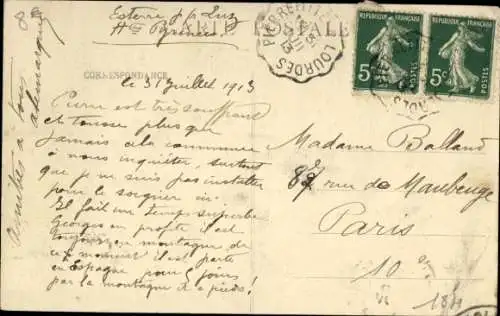 Esterre p/r Luz
Htes Pyrénées
CARTE POSTALE
CORRESPONDANCE
le 31 Juillet 1913
Pierre est très souffrant
et tousse plus que
jamais cela commence
à nous inquiéter, surtout
que je ne suis pas installée
pour le soigner ici.
Il fait un temps superbe
Georges en profite il est
toujours en montagne de
ce moment il est parti
en Espagne pour 5 jours
par la montagne et à pieds!
Amitiés à tous
PIERREFITTE
LOURDES
REPUBLIQUE FRANÇAISE
5c
POSTES
REPUBLIQUE FRANÇAISE
5c
POSTES
Madame Balland
87 rue de Maubeuge
Paris
10